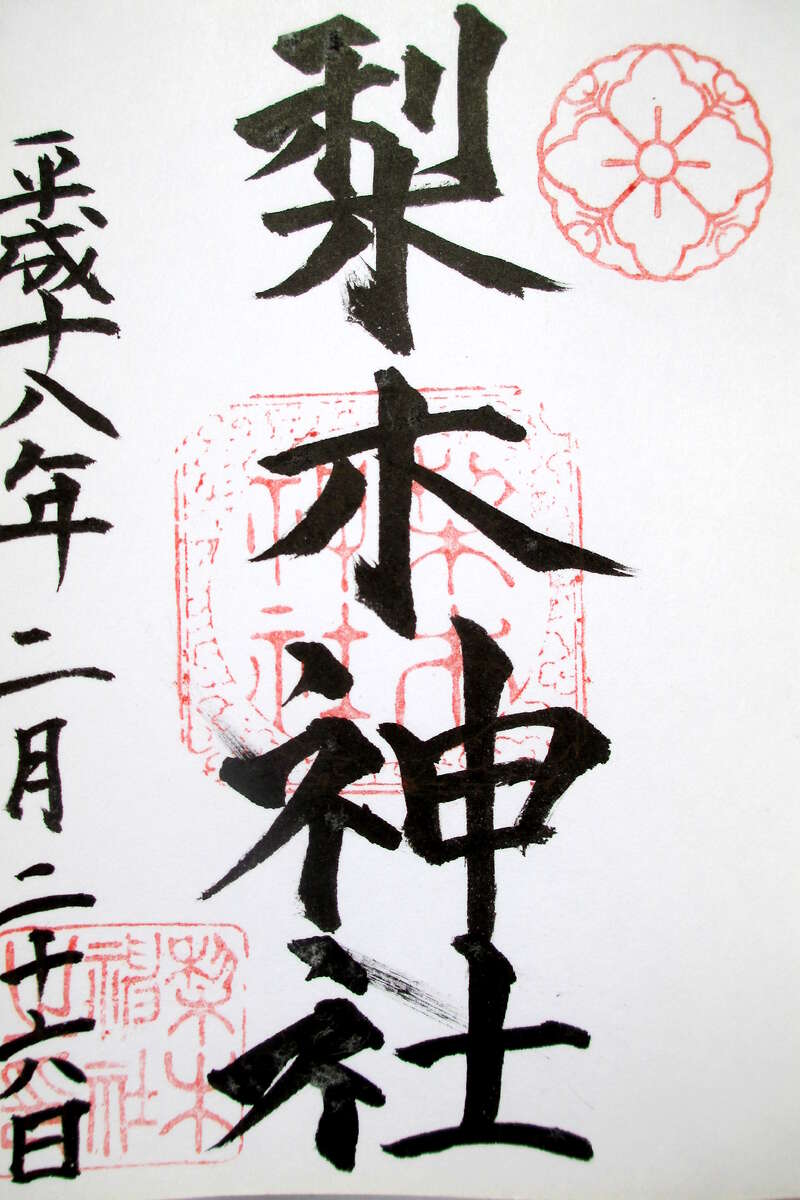 梨木神社
平成十八年二月二十六日
梨木
神社
梨木
神社